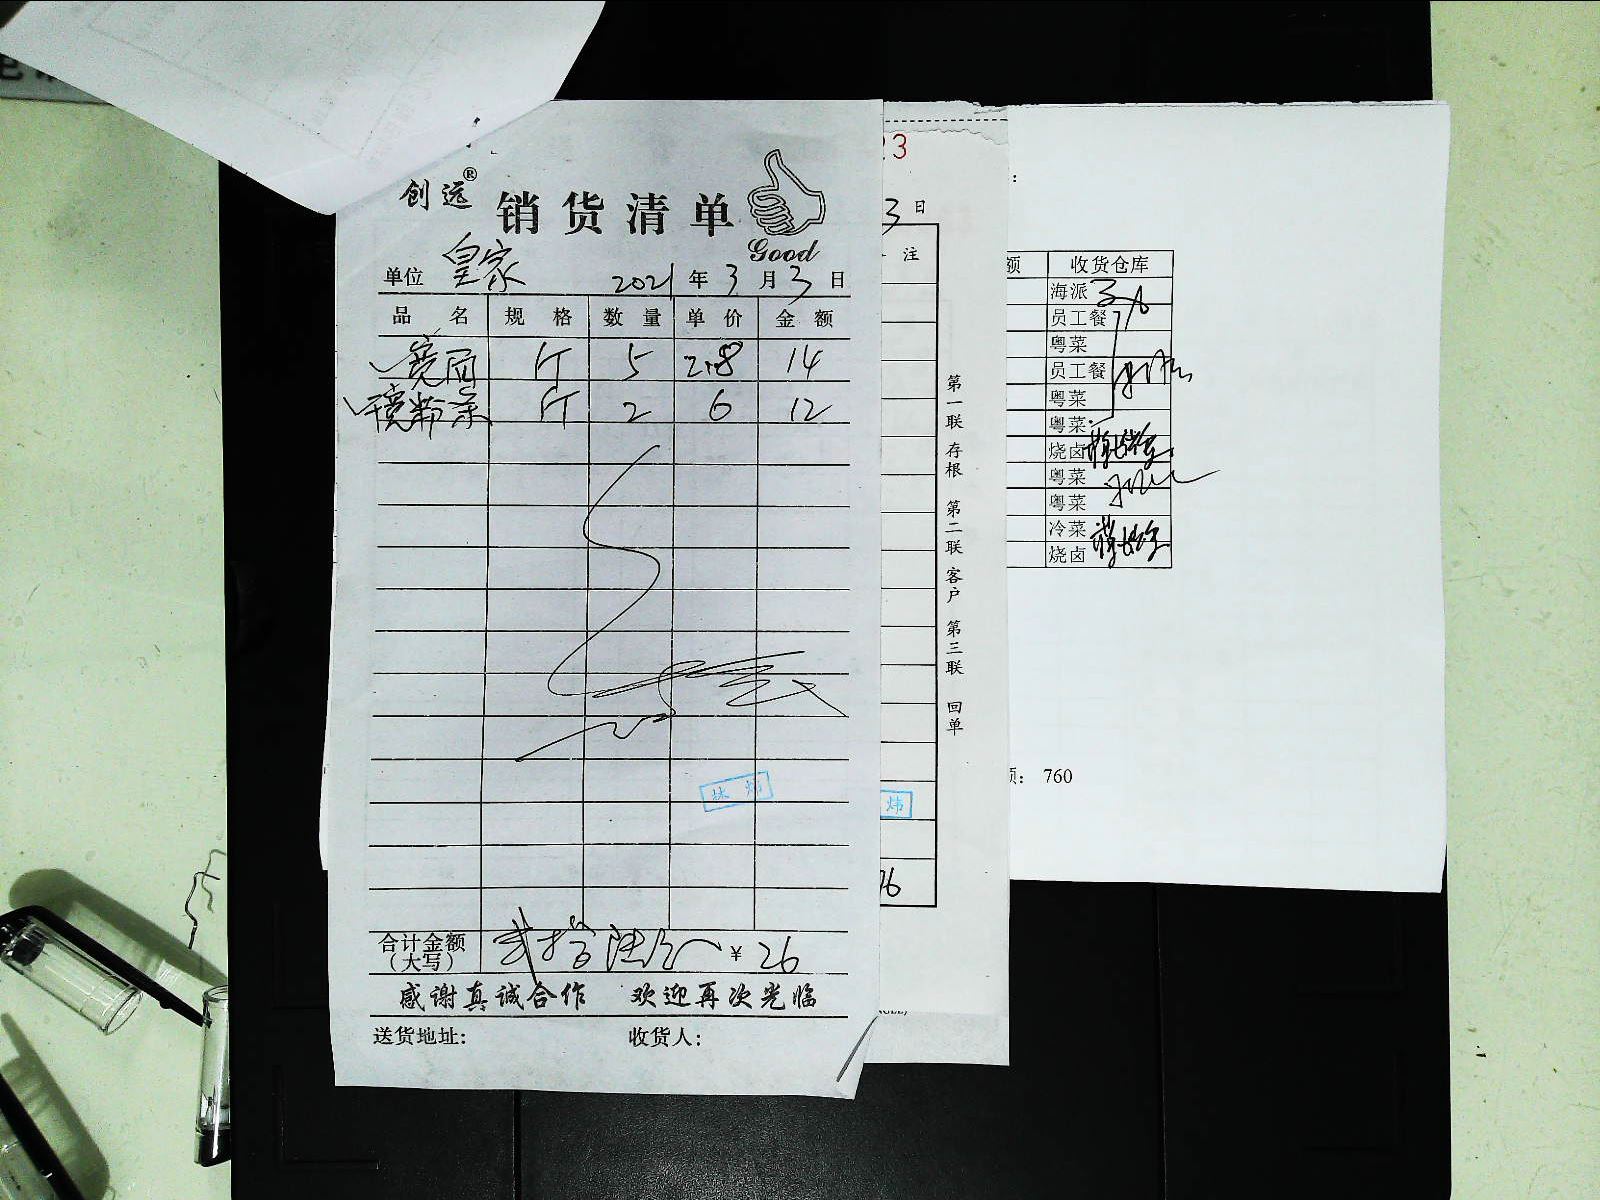 创远®
销货清单
Good
单位 皇家 2021年3月3日
品名 规格 数量 单价 金额
宽面 斤 5 2.8 14
粉条 斤 2 6 12
合计金额
(大写) 贰拾陆元 ¥26
感谢真诚合作 欢迎再次光临
送货地址: 收货人:
23
3日
注
第一联 存根 第二联 客户 第三联 回单
炜
76
:
额 收货仓库
海派
员工餐
粤菜
员工餐
粤菜
粤菜
烧卤
粤菜
粤菜
冷菜
烧卤
额: 760